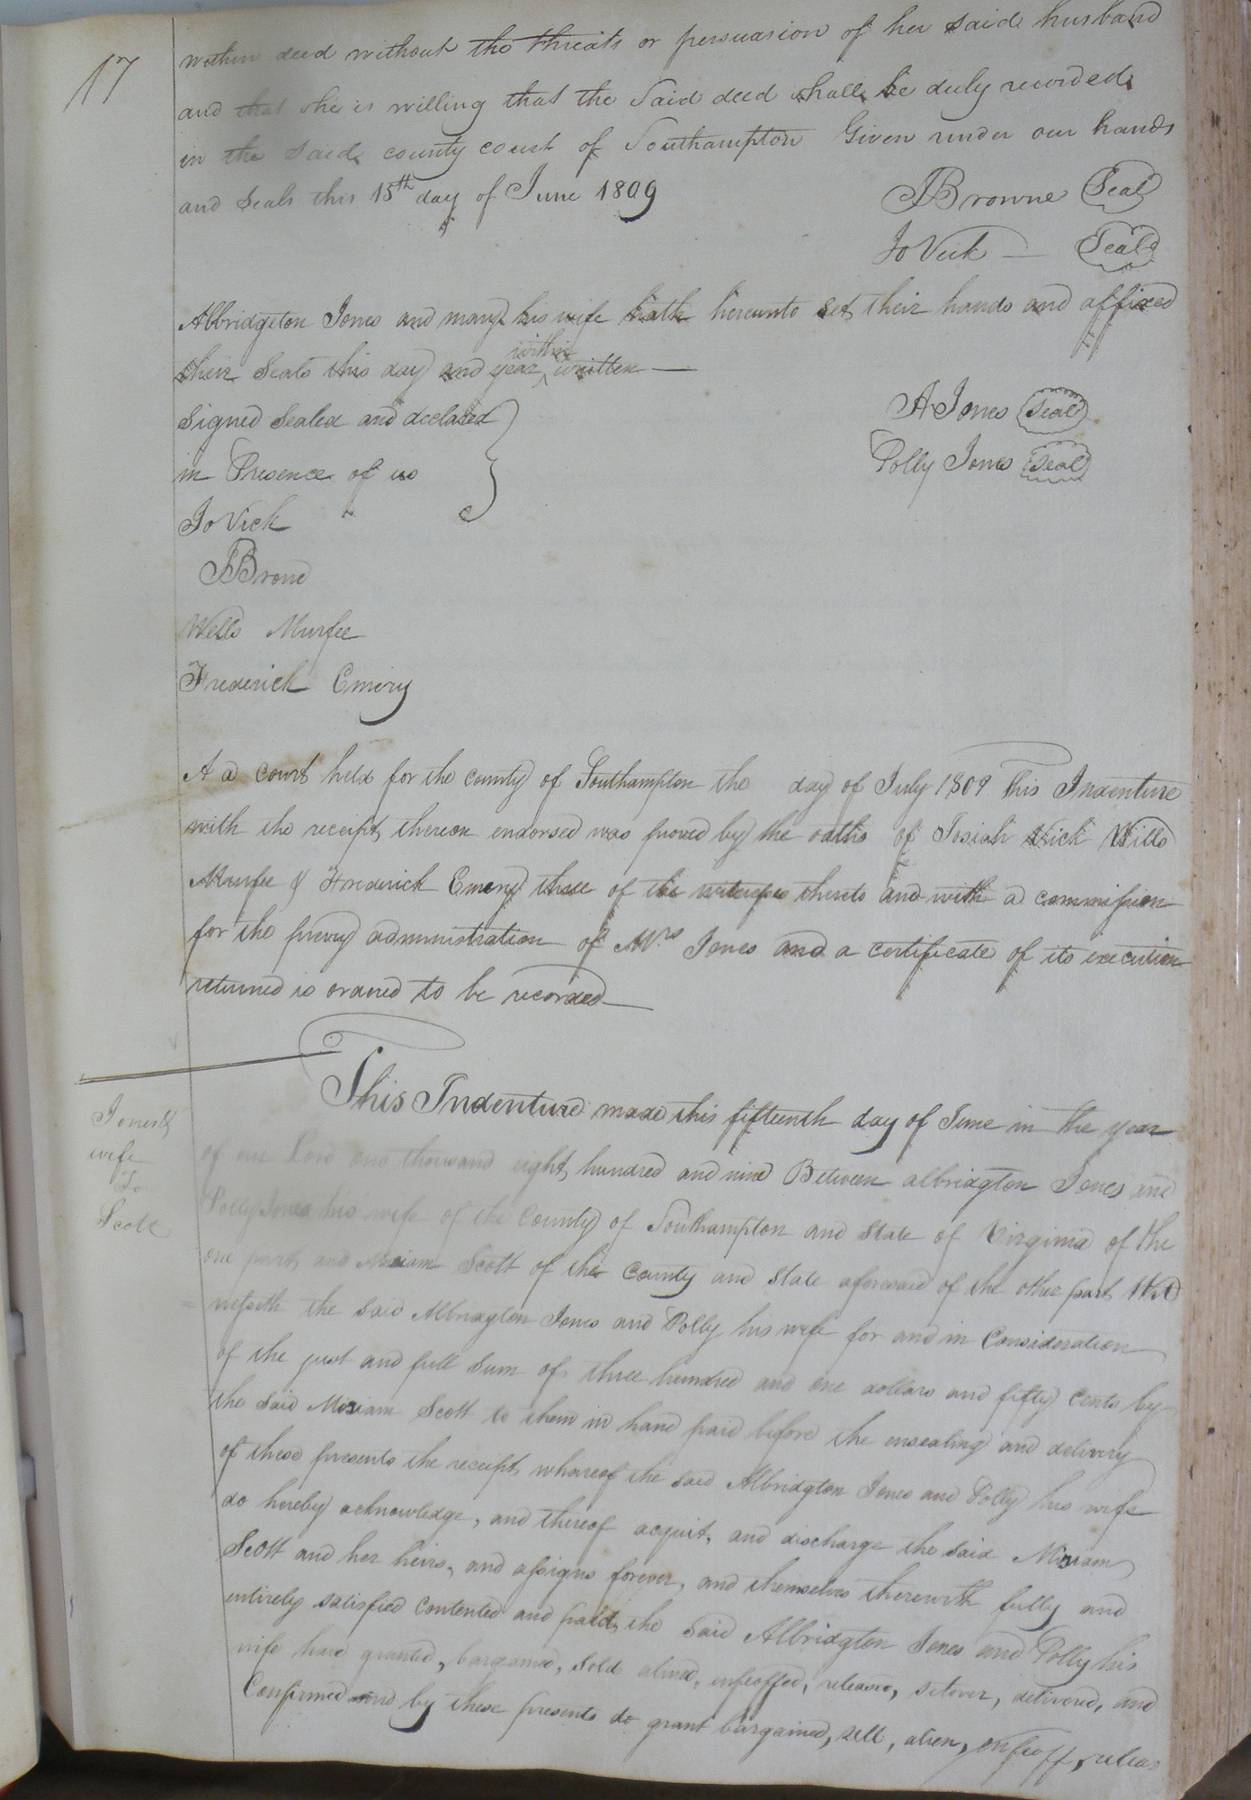 17
within deed without the threats or persuasion of her said husband
and that she is willing that the Said deed shall be duly recorded
in the said county court of Southampton Given under our hands
and Seals this 15th day of June 1809
JBrowne Seal
Jo Vick Seal
Albridgton Jones and mary his wife hath hereunto set their hands and affixed
their Seals this day and year within written
Signed Sealed and declared
in Presence of us
A Jones Seal
Polly Jones Seal
Jo Vick
JBrone
Wells Murfee
Frederick Emery
A a court held for the county of Southampton the day of July 1809 This Indenture
with the receipt thereon endorsed was proved by the oaths of Josiah Vick Wills
Murfee & Frederick Emery three of the witnesses thereto and with a commission
for the privy administration of Mrs Jones and a certificate of its execution
returned is ordered to be recorded
Jones &
wife
To
Scott
This Indenture made this fifteenth day of June in the year
of our Lord one thousand eight hundred and nine Between albridgton Jones and
Polly Jones his wife of the County of Southampton and State of Virginia of the
one part and Miriam Scott of the County and State aforesaid of the other part Wit
nesseth the said Albridgton Jones and Polly his wife for and in Consideration
of the just and full Sum of three hundred and one dollars and fifty Cents by
the said Miriam Scott to them in hand paid before the ensealing and delivery
of these presents the receipt whareof the said Albridgton Jones and Polly his wife
do hereby acknowledge, and thereof acquit, and discharge the said Miriam
Scott and her heirs, and assigns forever, and themselves therewith fully and
entirely satisfied Contented and paid, the Said Albridgton Jones and Polly his
wife have granted, bargained, sold aliend, enfeoffed, released, setover, delivered, and
Confirmed and by these presents do grant bargained, sell, alien, enfeoff, releas